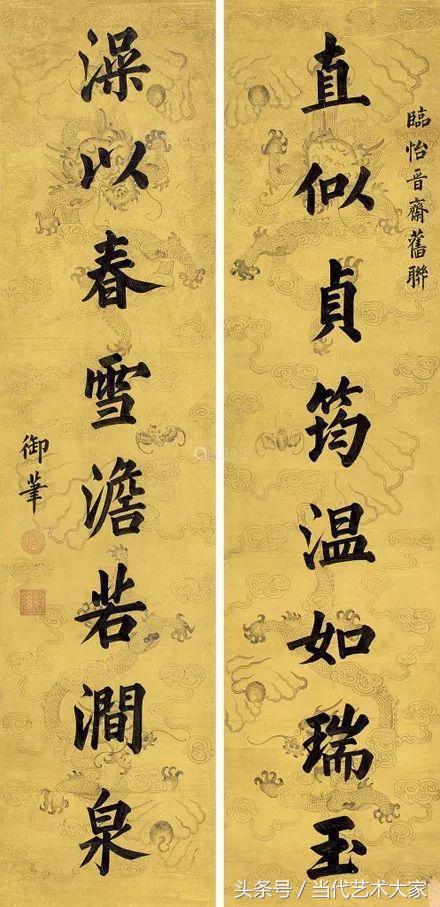 臨怡晉齋舊聯
直似貞筠温如瑞玉
澡以春雪澹若澗泉
御筆
头条号 / 当代艺术大家